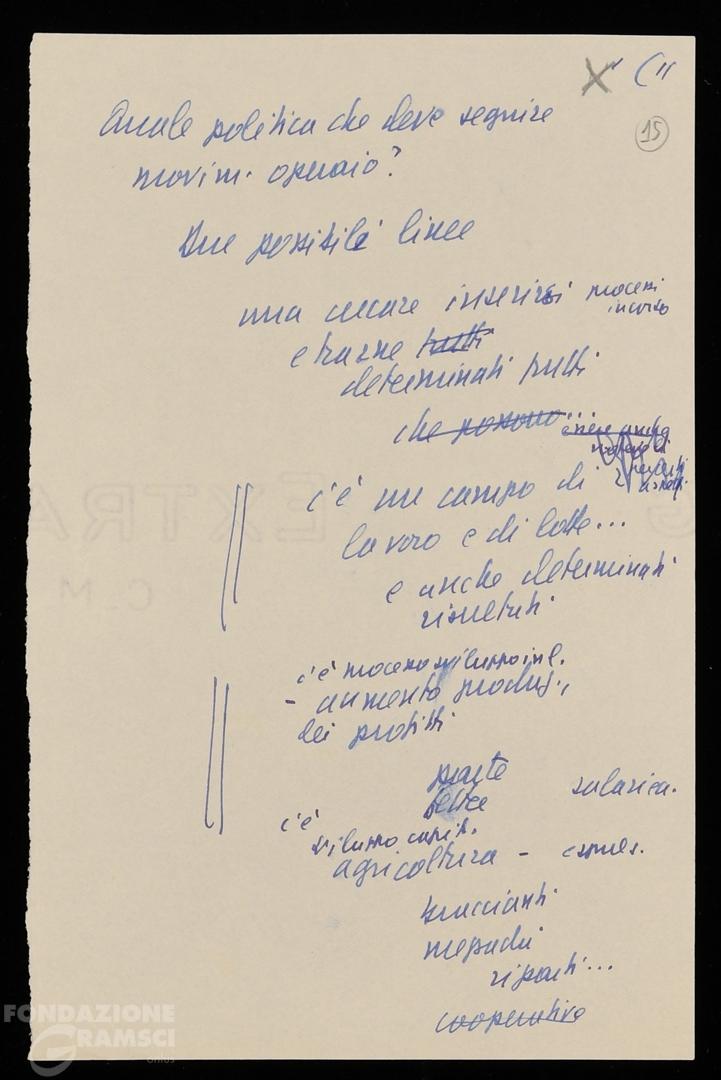 X " C "
15
Quale politica che deve seguire
movim. operaio?
Due possibile linee
una cercare inserirsi processi
in corso
e trarne tutti
determinati frutti
che possono... essere anche
c'è un campo di
lavoro e di lotte...
e anche determinati
risultati
c'è processo sviluppo ind.
- aumento produz.,
dei profitti
parte
felice salarica.
c'è
sviluppo capit.
agricoltura -
braccianti
mezzadri
riparti...
cooperative
FONDAZIONE
GRAMSCI
onlus